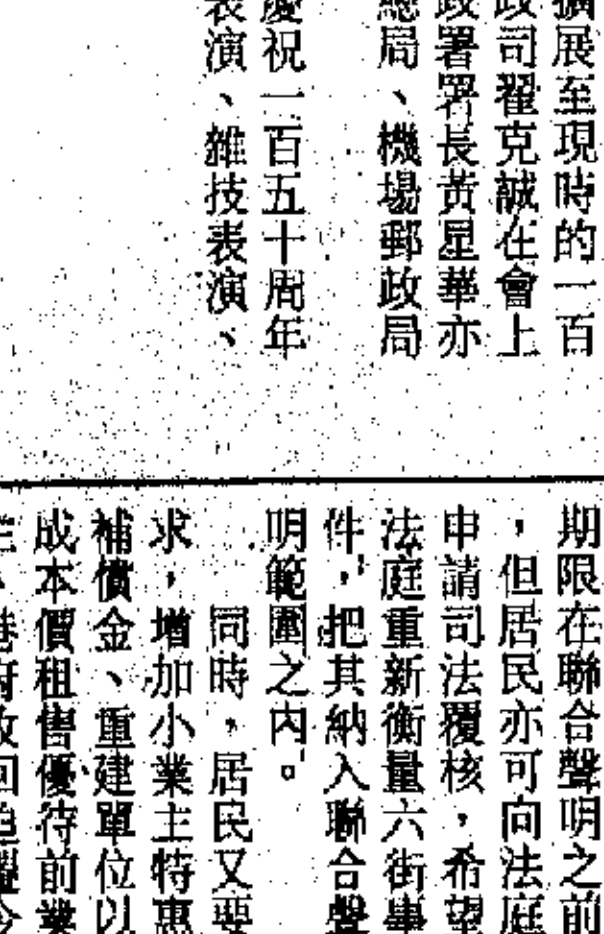 擴展至現時的一百
政司翟克誠在會上
政署署長黃星華亦
總局、機場郵政局
慶祝一百五十周年
表演、雜技表演、
期限在聯合聲明之前
，但居民亦可向法庭
申請司法覆核，希望
法庭重新衡量六街事
件，把其納入聯合聲
明範圍之內。
同時，居民又要
求，增加小業主特惠
補償金、重建單位以
成本價租售優待前業
主、港府收回